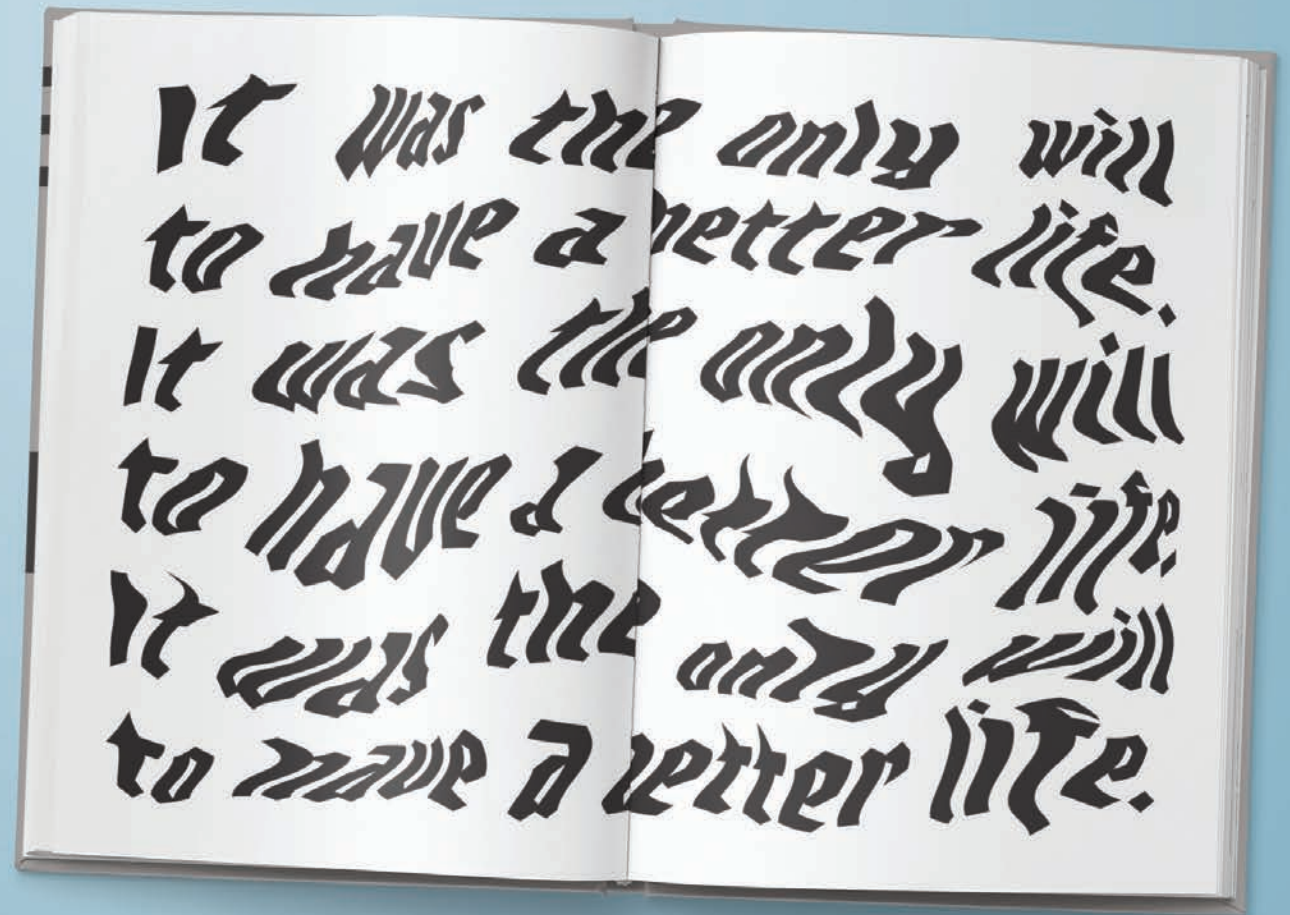 It was the only will
to have a better life.
It was the only will
to have a better life.
It was the only will
to have a better life.